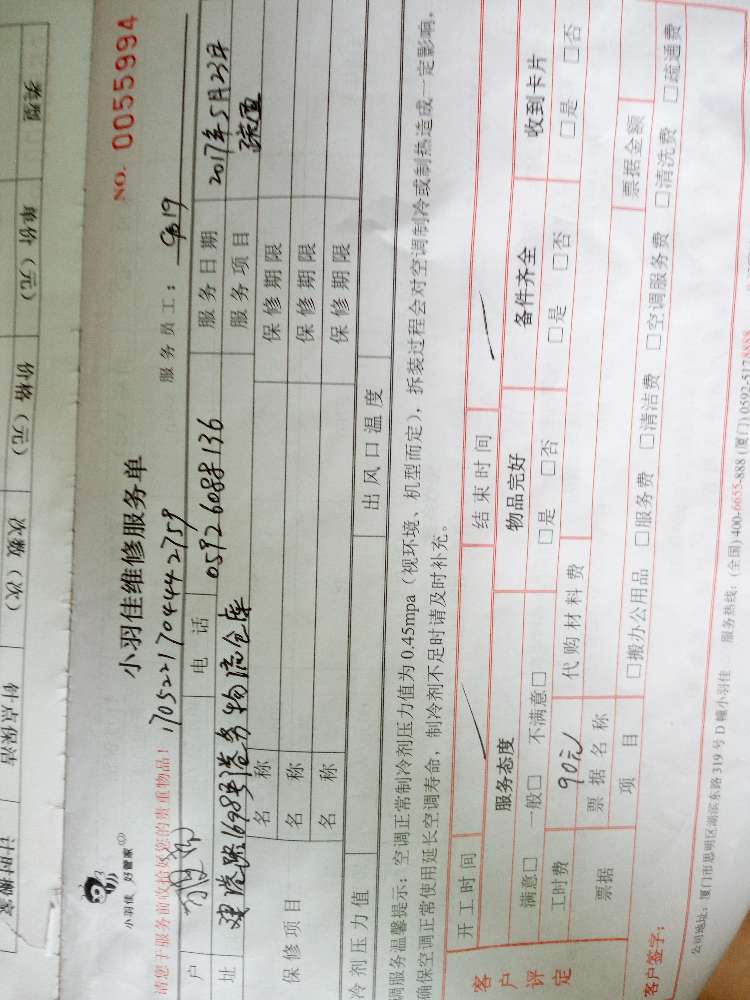 小羽佳 好管家
小羽佳维修服务单
NO. 0055994
请您于服务前收拾好您的贵重物品!
17052217044442759
服务员工: 9819
户
电话
05926088136
服务日期
2017年5月23日
址
建港路1698号港务物流仓库
服务项目
疏通
保修项目
名称
保修期限
名称
保修期限
名称
保修期限
冷剂压力值
出风口温度
调服务温馨提示:空调正常制冷剂压力值为0.45mpa(视环境、机型而定),拆装过程会对空调制冷或制热造成一定影响,
确保空调正常使用延长空调寿命,制冷剂不足时请及时补充。
开工时间
结束时间
客户评定
服务态度
物品完好
备件齐全
收到卡片
满意□ 一般□ 不满意□
□是 □否
□是 □否
□是 □否
工时费
90元
代购材料费
票据
票据名称
票据金额
项目
□搬办公用品 □服务费 □清洁费 □空调服务费 □清洗费 □疏通费
客户签字:
公司地址:厦门市思明区湖滨东路319号D幢小羽佳 服务热线:(全国)400-6655-888 (厦门)0592-5178888
类型
单价(元)
价格(元)
次数(次)